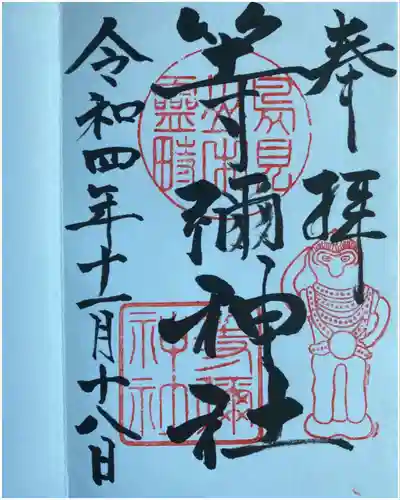 奉拝
等彌神社
令和四年十一月十八日
鳥見山中霊畤
等彌神社